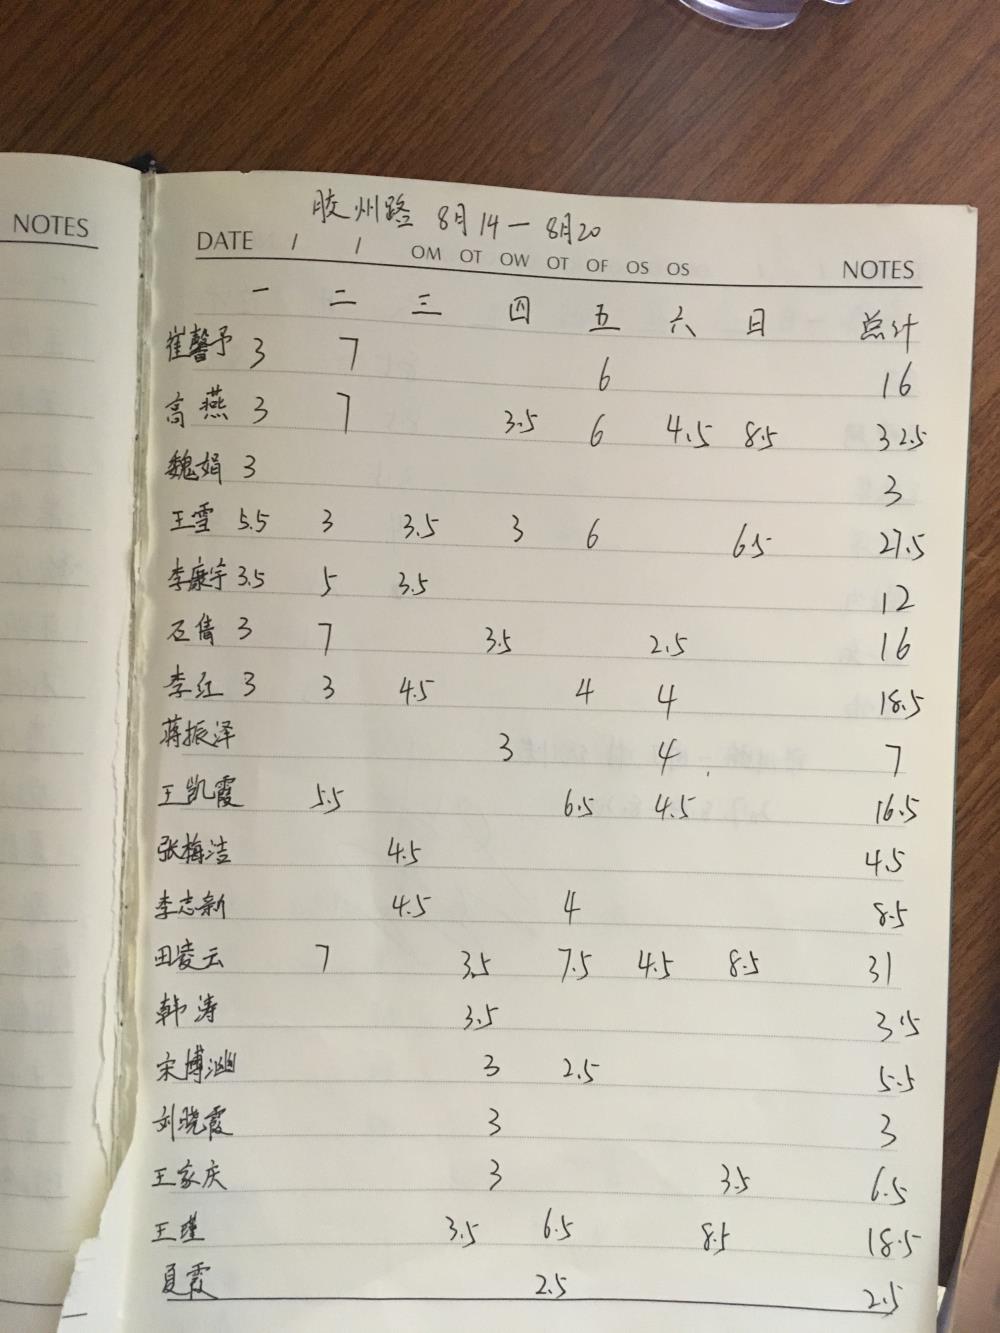 NOTES
胶州路 8月14-8月20
DATE / / OM OT OW OT OF OS OS NOTES
一 二 三 四 五 六 日 总计
崔馨予 3 7 6 16
高燕 3 7 3.5 6 4.5 8.5 32.5
魏娟 3 3
王雪 5.5 3 3.5 3 6 6.5 27.5
李康宇 3.5 5 3.5 12
石倩 3 7 3.5 2.5 16
李红 3 3 4.5 4 4 18.5
蒋振泽 3 4 7
王凯霞 5.5 6.5 4.5 16.5
张梅洁 4.5 4.5
李志新 4.5 4 8.5
田凌云 7 3.5 7.5 4.5 8.5 31
韩涛 3.5 3.5
宋博 3 2.5 5.5
刘晓霞 3 3
王家庆 3 3.5 6.5
王瑾 3.5 6.5 8.5 18.5
夏霞 2.5 2.5